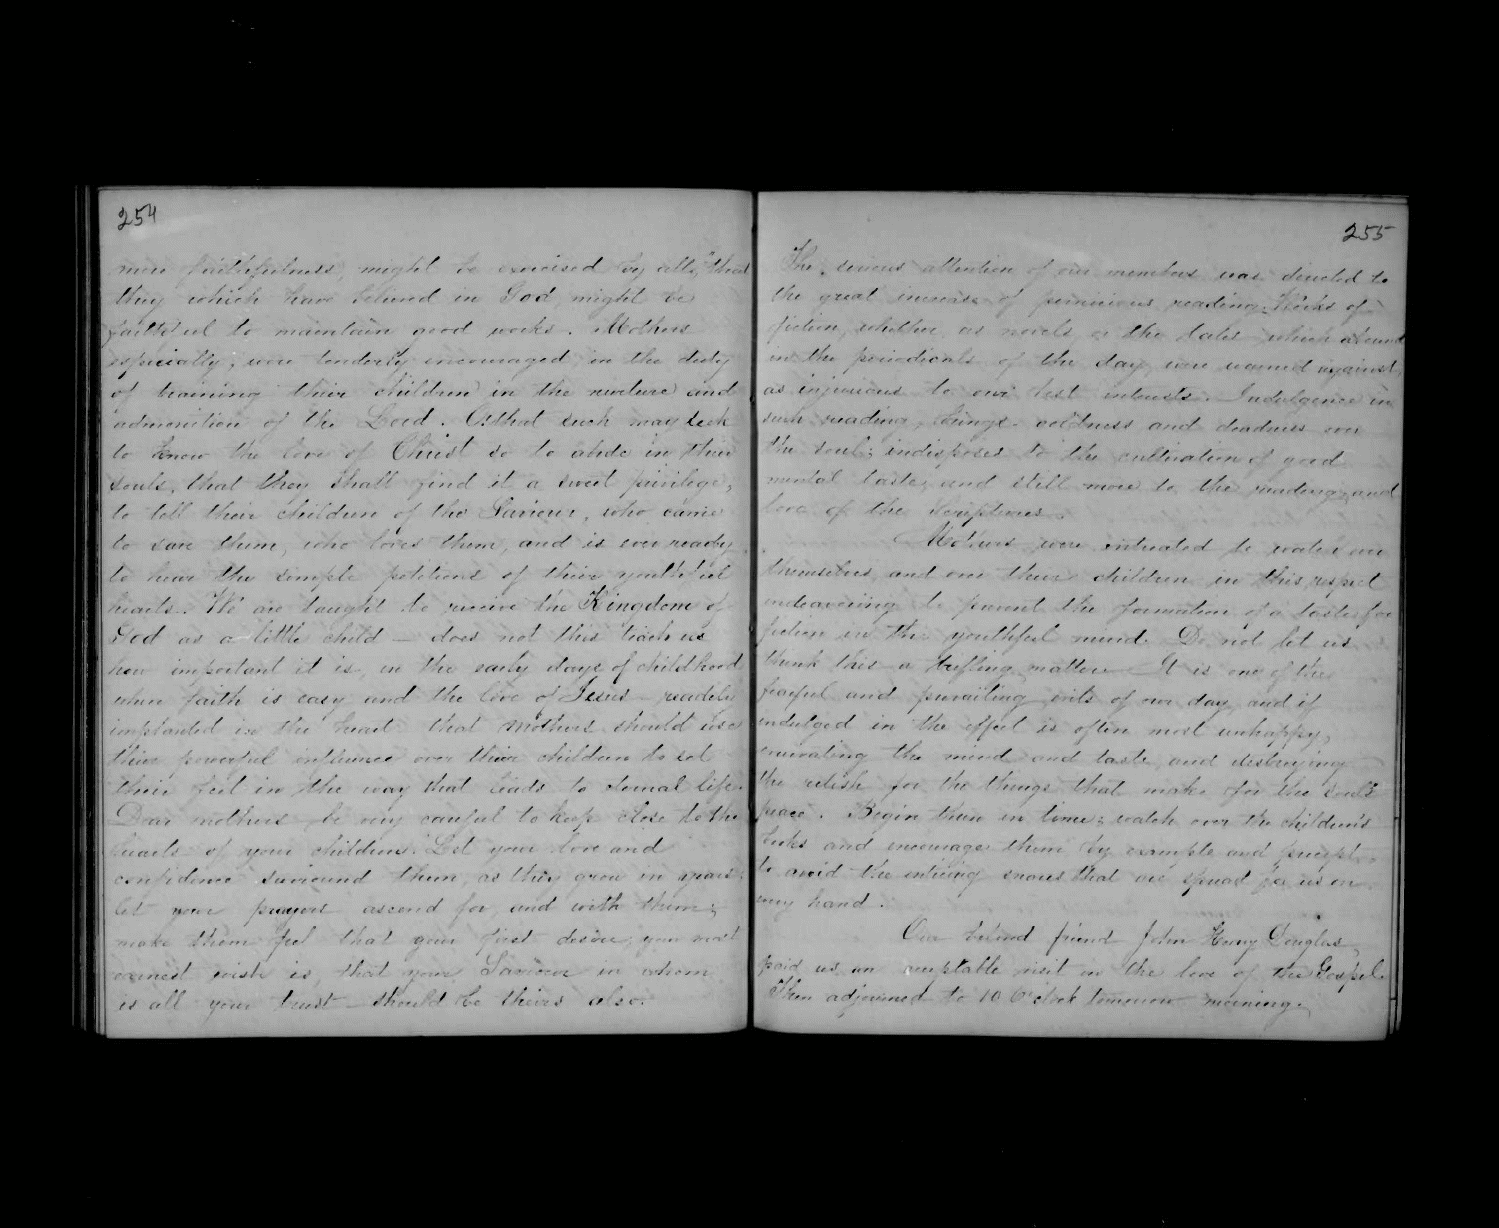 254
more faithfulness, might be exercised by all, "that
they which have believed in God might be
faithful to maintain good works. Mothers
especially, were tenderly encouraged in the duty
of training their children in the nurture and
admonition of the Lord. O that such may seek
to know the love of Christ so to abide in their
souls, that they shall find it a sweet privilege,
to tell their children of the Saviour, who came
to save them, who loves them, and is ever ready
to hear the simple petitions of their youthful
hearts. We are taught to receive the Kingdom of
God as a little child — does not this teach us
how important it is, in the early days of childhood
when faith is easy and the love of Jesus readily
implanted in the heart that mothers should use
their powerful influence over their children to set
their feet in the way that leads to eternal life.
Dear mothers be very careful to keep close to the
hearts of your children. Let your love and
confidence surround them, as they grow in years;
let your prayers ascend for, and with them;
make them feel that your first desire, your most
earnest wish is, that your Saviour in whom
is all your trust should be theirs also.
255
The serious attention of our members was directed to
the great increase of pernicious reading. Works of
fiction, whether as novels or the tales which abound
in the periodicals of the day, were warned against,
as injurious to our best interests. Indulgence in
such reading, brings coldness and deadness over
the soul; indisposes to the cultivation of good
mental taste, and still more to the reading and
love of the Scriptures.
Mothers were entreated to watch over
themselves, and over their children in this respect
endeavoring to prevent the formation of a taste for
fiction in the youthful mind. Do not let us
think this a trifling matter. It is one of the
fearful and prevailing evils of our day, and if
indulged in the effect is often most unhappy,
enervating the mind and taste, and destroying
the relish for the things that make for the soul's
peace. Begin then in time; watch over the children's
books and encourage them by example and precept
to avoid the enticing snares that are spread for us on
every hand.
Our beloved friend John Henry Douglas
paid us an acceptable visit in the love of the Gospel.
Then adjourned to 10 O'clock tomorrow morning.